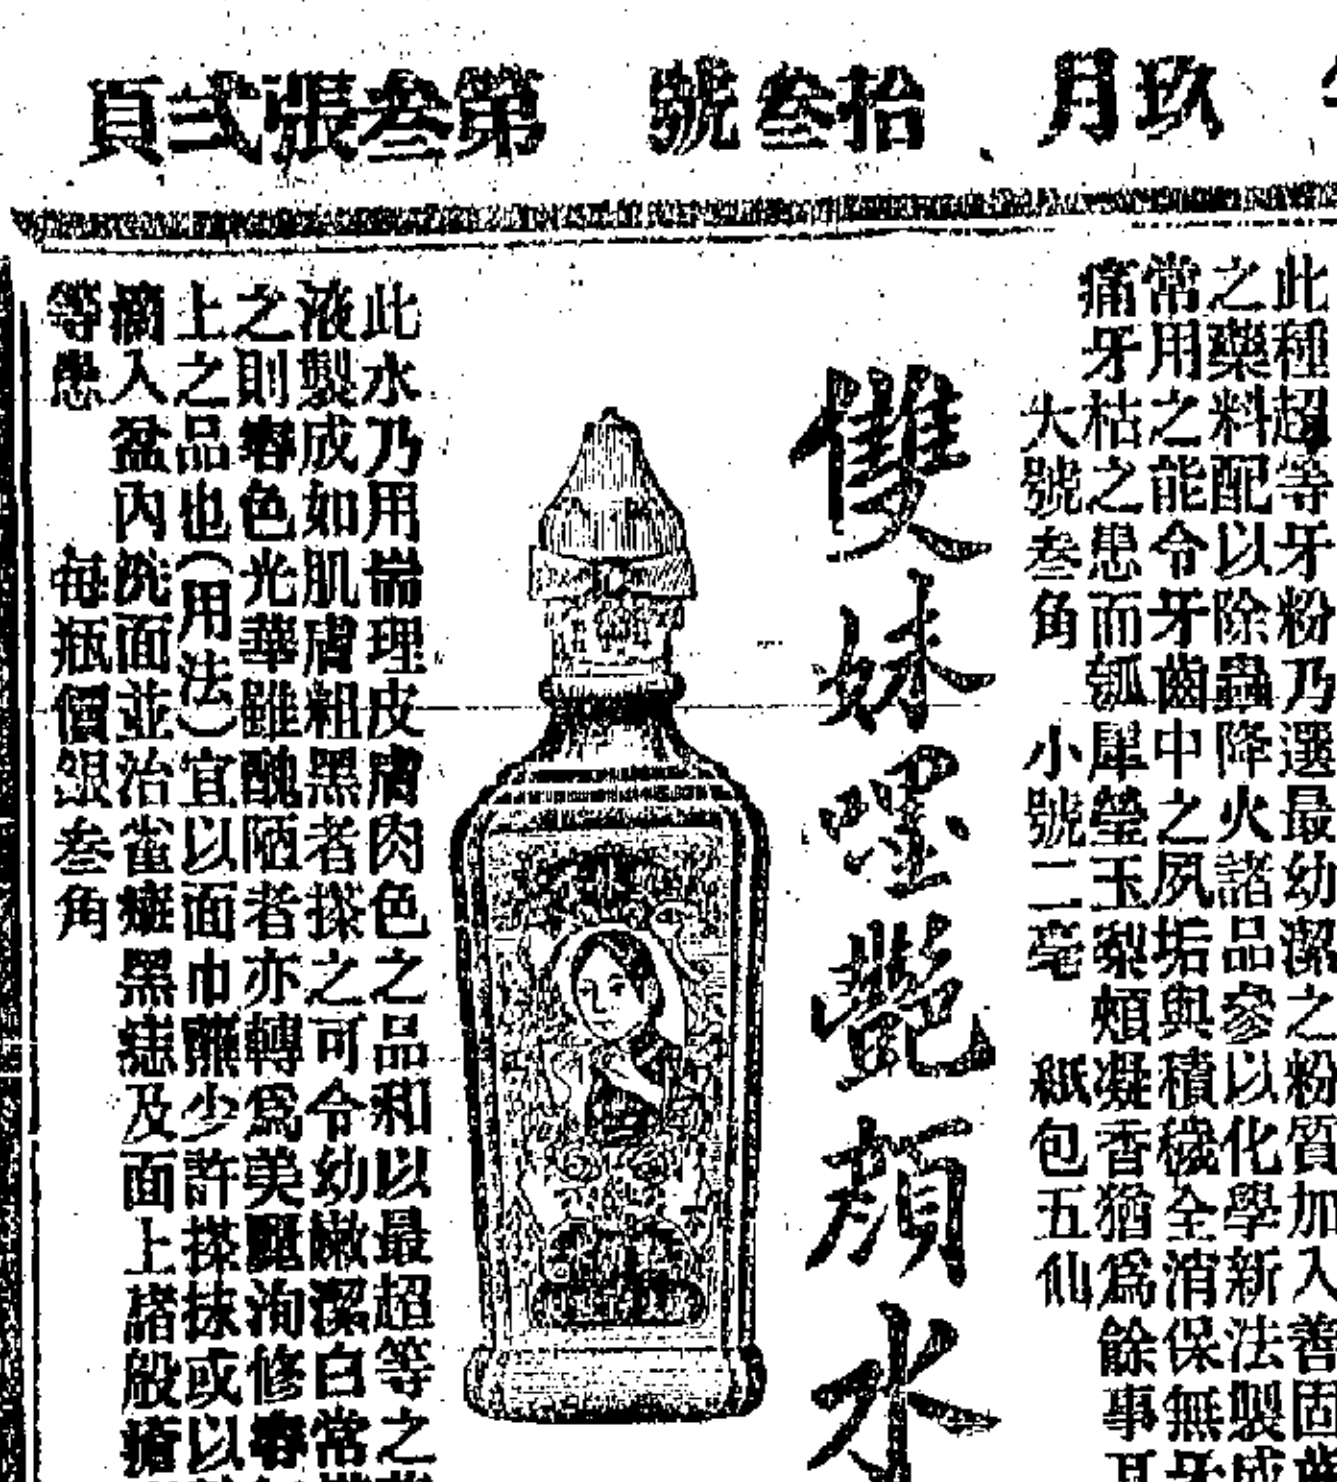 玖月 拾叁號 第叁張弍頁
此種超等牙粉乃選最幼潔之粉質加入善固
之藥料配以除蟲降火諸品參以化學新法製成
常用之能令牙齒中之夙垢與積穢全消保無牙
痛牙枯之患而瓠犀瑩玉梨頰凝香猶爲餘事耳
大號叁角 小號二毫 紙包五仙
雙妹嚜艷顏水
此水乃用耑理皮膚肉色之品和以最超等之
液製成如肌膚粗黑者搽之可令幼嫩潔白常
之則容色光華雖醜陋者亦轉爲美麗洵修容
上之品也(用法)宜以面巾蘸少許搽抹或以
滴入盆內洗面並治雀斑黑痣及面上諸般瘡
等患 每瓶價銀叁角